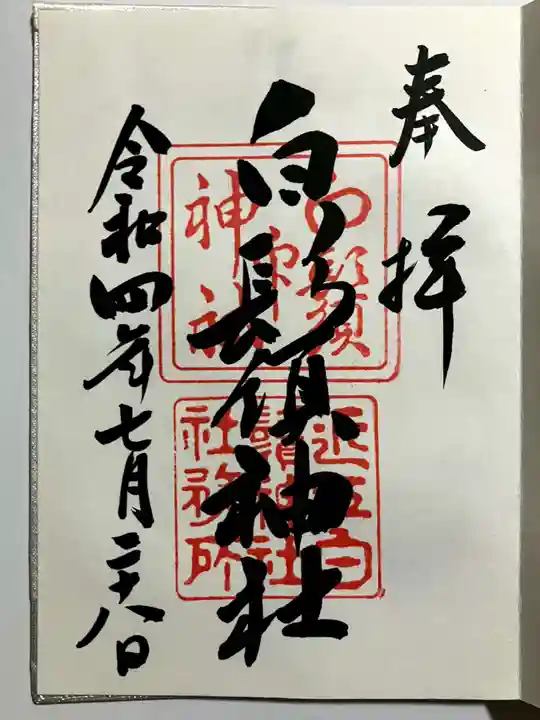 奉拝
白髭神社
令和四年七月二十八日
白鬚
神社
近江白
鬚神社
社務所